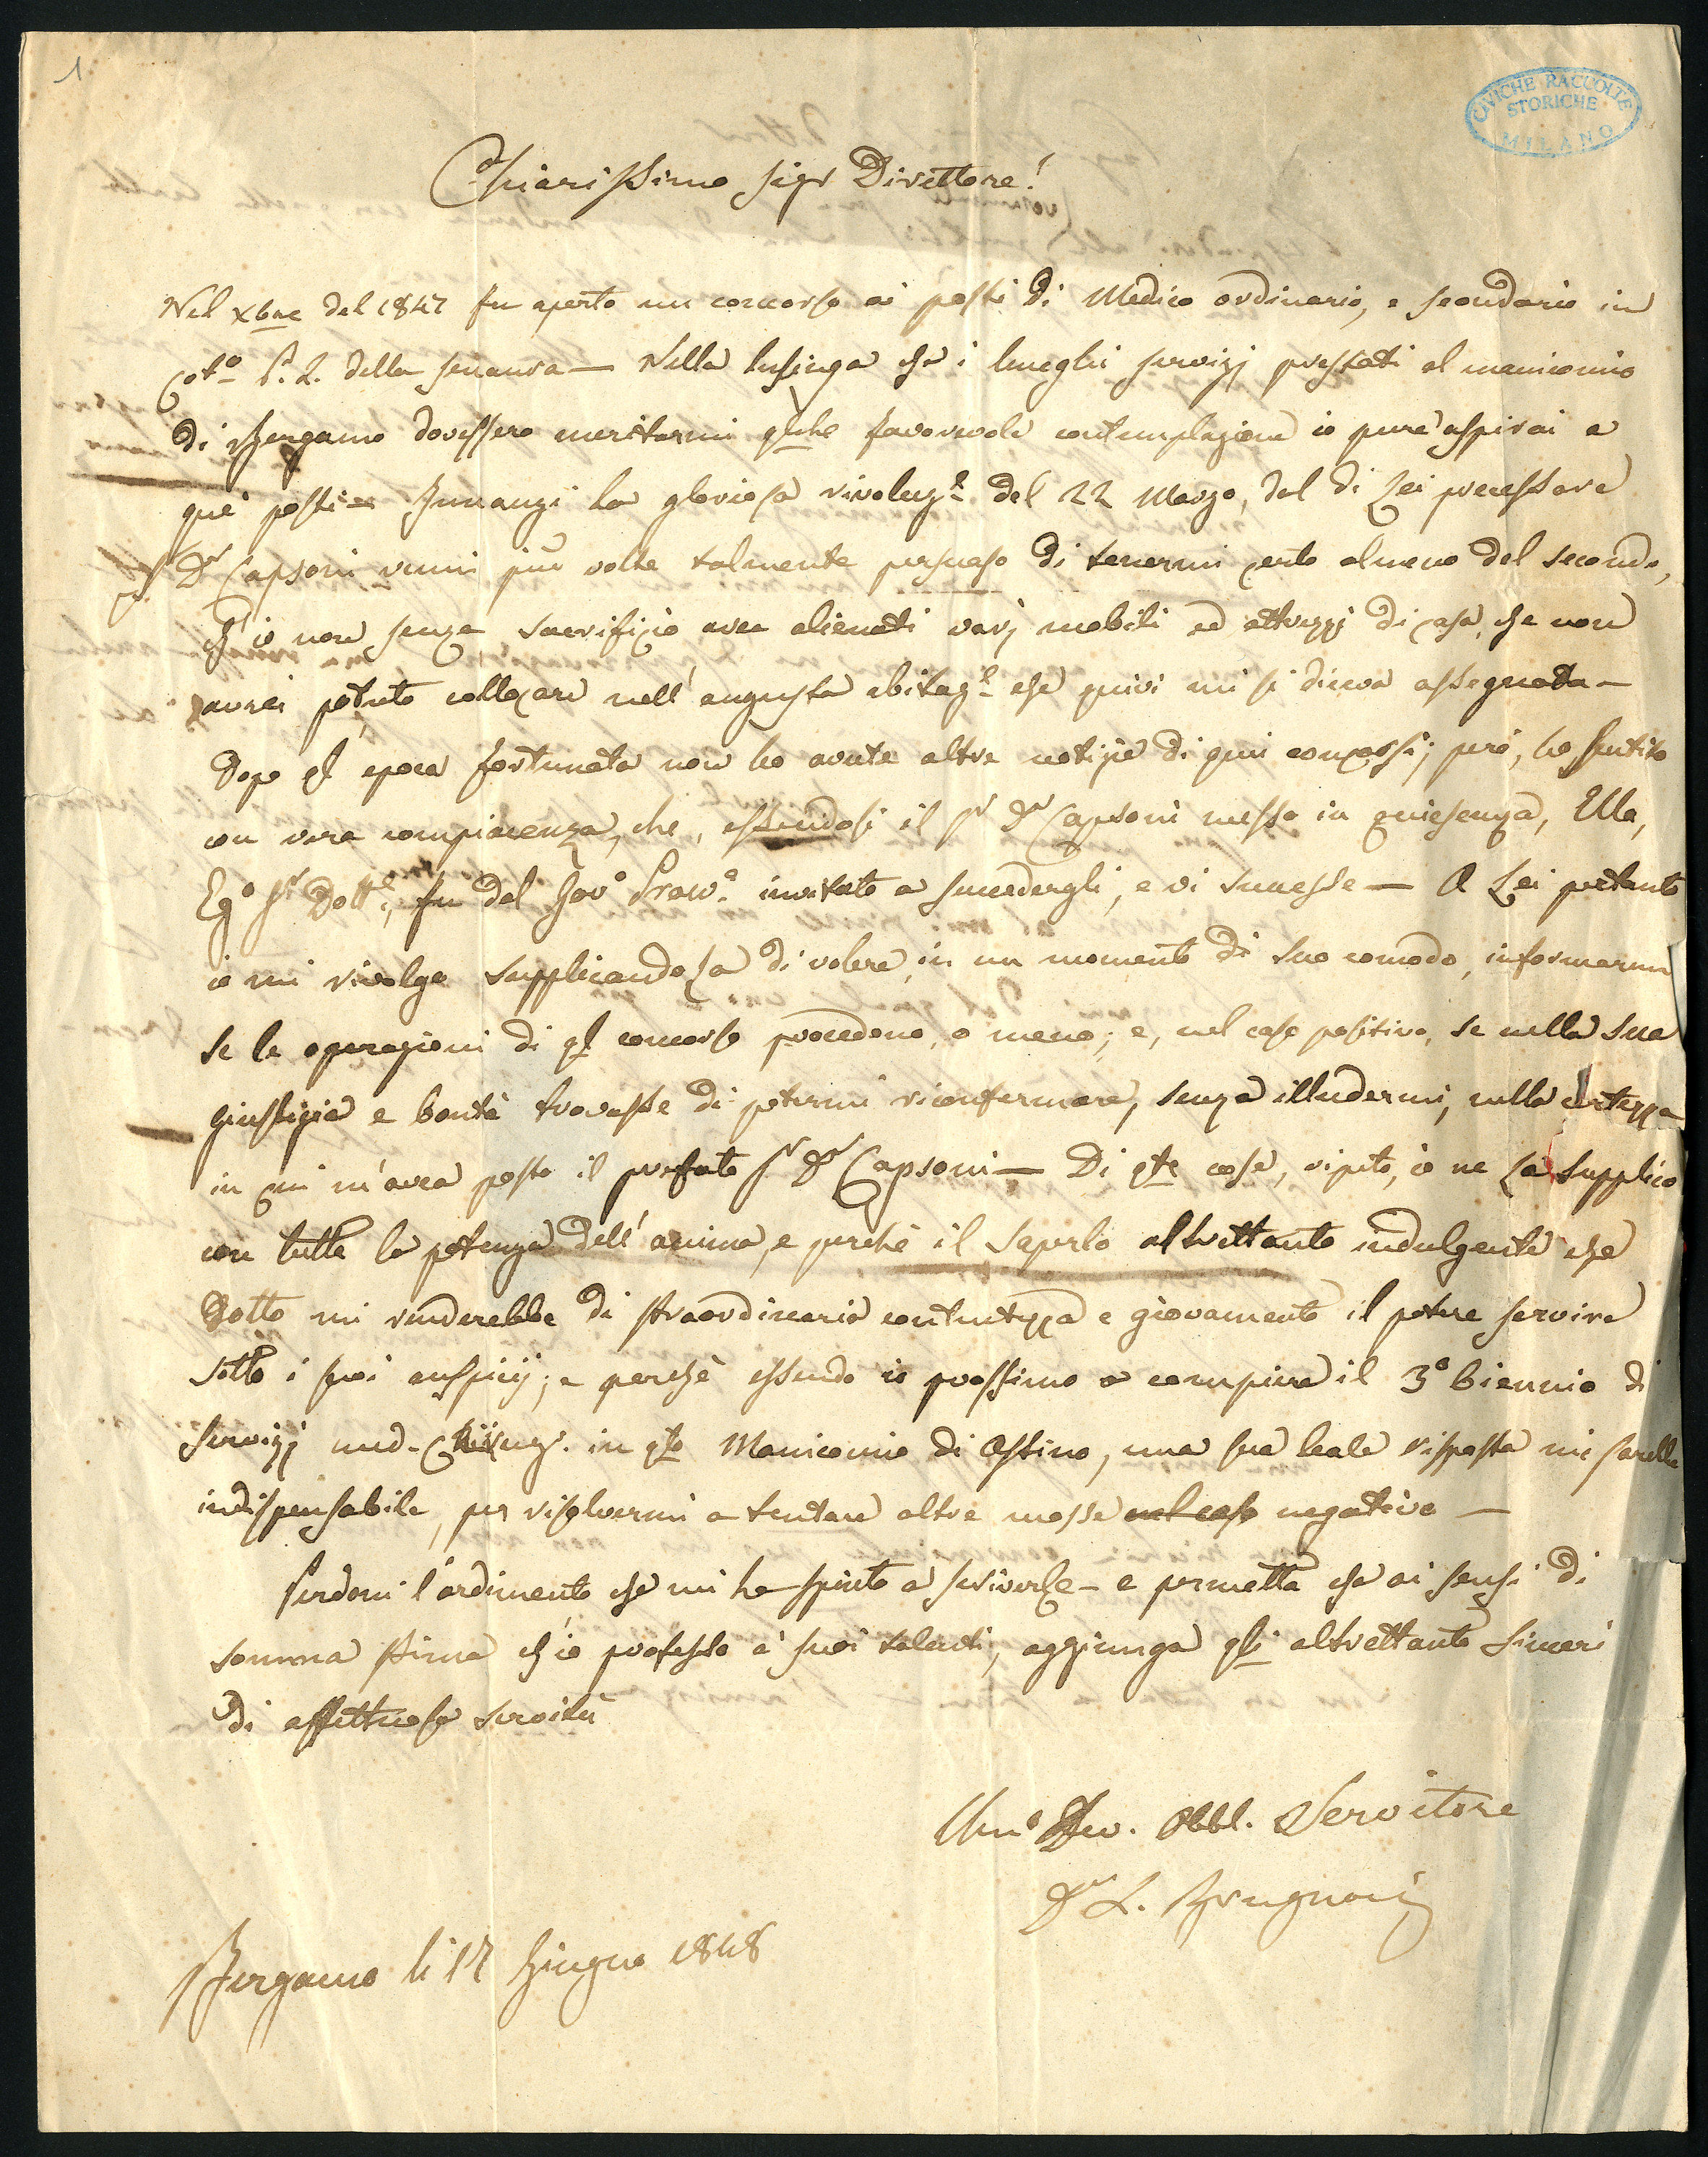 1
CIVICHE RACCOLTE
STORICHE
MILANO
Chiarissimo Sigr Direttore!
Nel Xbre del 1847 fu aperto un concorso ai posti di Medico ordinario, e secondario in
Cot.o P. L. della senavra — Nella lusinga che i lunghi servizj prestati al manicomio
di Bergamo dovessero meritarmi qlche favorevole contemplazione io pure aspirai a
que' posti — Innanzi la gloriosa rivoluz.e del 22 Marzo, dal di Lei precessore
Sr Dr Capsoni venni più volte talmente persuaso di tenermi certo almeno del secondo,
ch'io non senza sacrifizio avea alienati varj mobili ed attrezzj di casa, che non
avrei potuto collocare nell'angusta abitaz.e che quivi mi si diceva assegnata —
Dopo ql epoca fortunata non ho avute altre notizie di quei concorsi; però, ho sentito
con vera compiacenza, che, essendosi il Sr Dr Capsoni messo in quiescenza, Ella,
Eg.o Sr Dott.e, fu dal Gov.o Provv.o invitato a succedergli, e vi successe — A Lei pertanto
io mi rivolgo supplicandoLa di volere, in un momento di suo comodo, informarmi
se le operazioni di ql concorso procedono, o meno; e, nel caso positivo, se nella sua
giustizia e bontà trovasse di potermi riconfermare, senza illudermi, nella certezza
in cui m'avea posto il prefato Sr Dr Capsoni — Di qte cose, ripeto, io ne La supplico
con tutta la potenza dell'anima, e perchè il saperlo altrettanto indulgente che
Dotto mi renderebbe di straordinaria contentezza e giovamento il potere servire
sotto i suoi auspicij; e perchè essendo io prossimo a compiere il 3.o biennio di
servizj med-Chirurg. in qto Manicomio di Astino, una sua leale risposta mi sarebbe
indispensabile, per risolvermi a tentare altre mosse nel caso negativo —
Perdoni l'ardimento che mi ha spinto a scriverLe — e permetta che ai sensi di
somma stima ch'io professo a' suoi talenti, aggiunga qli altrettanto sinceri
di affettuosa servitù
Um.o Dev. Obbl. Servitore
Dr L. Brugnoni
Bergamo li 17 Giugno 1848